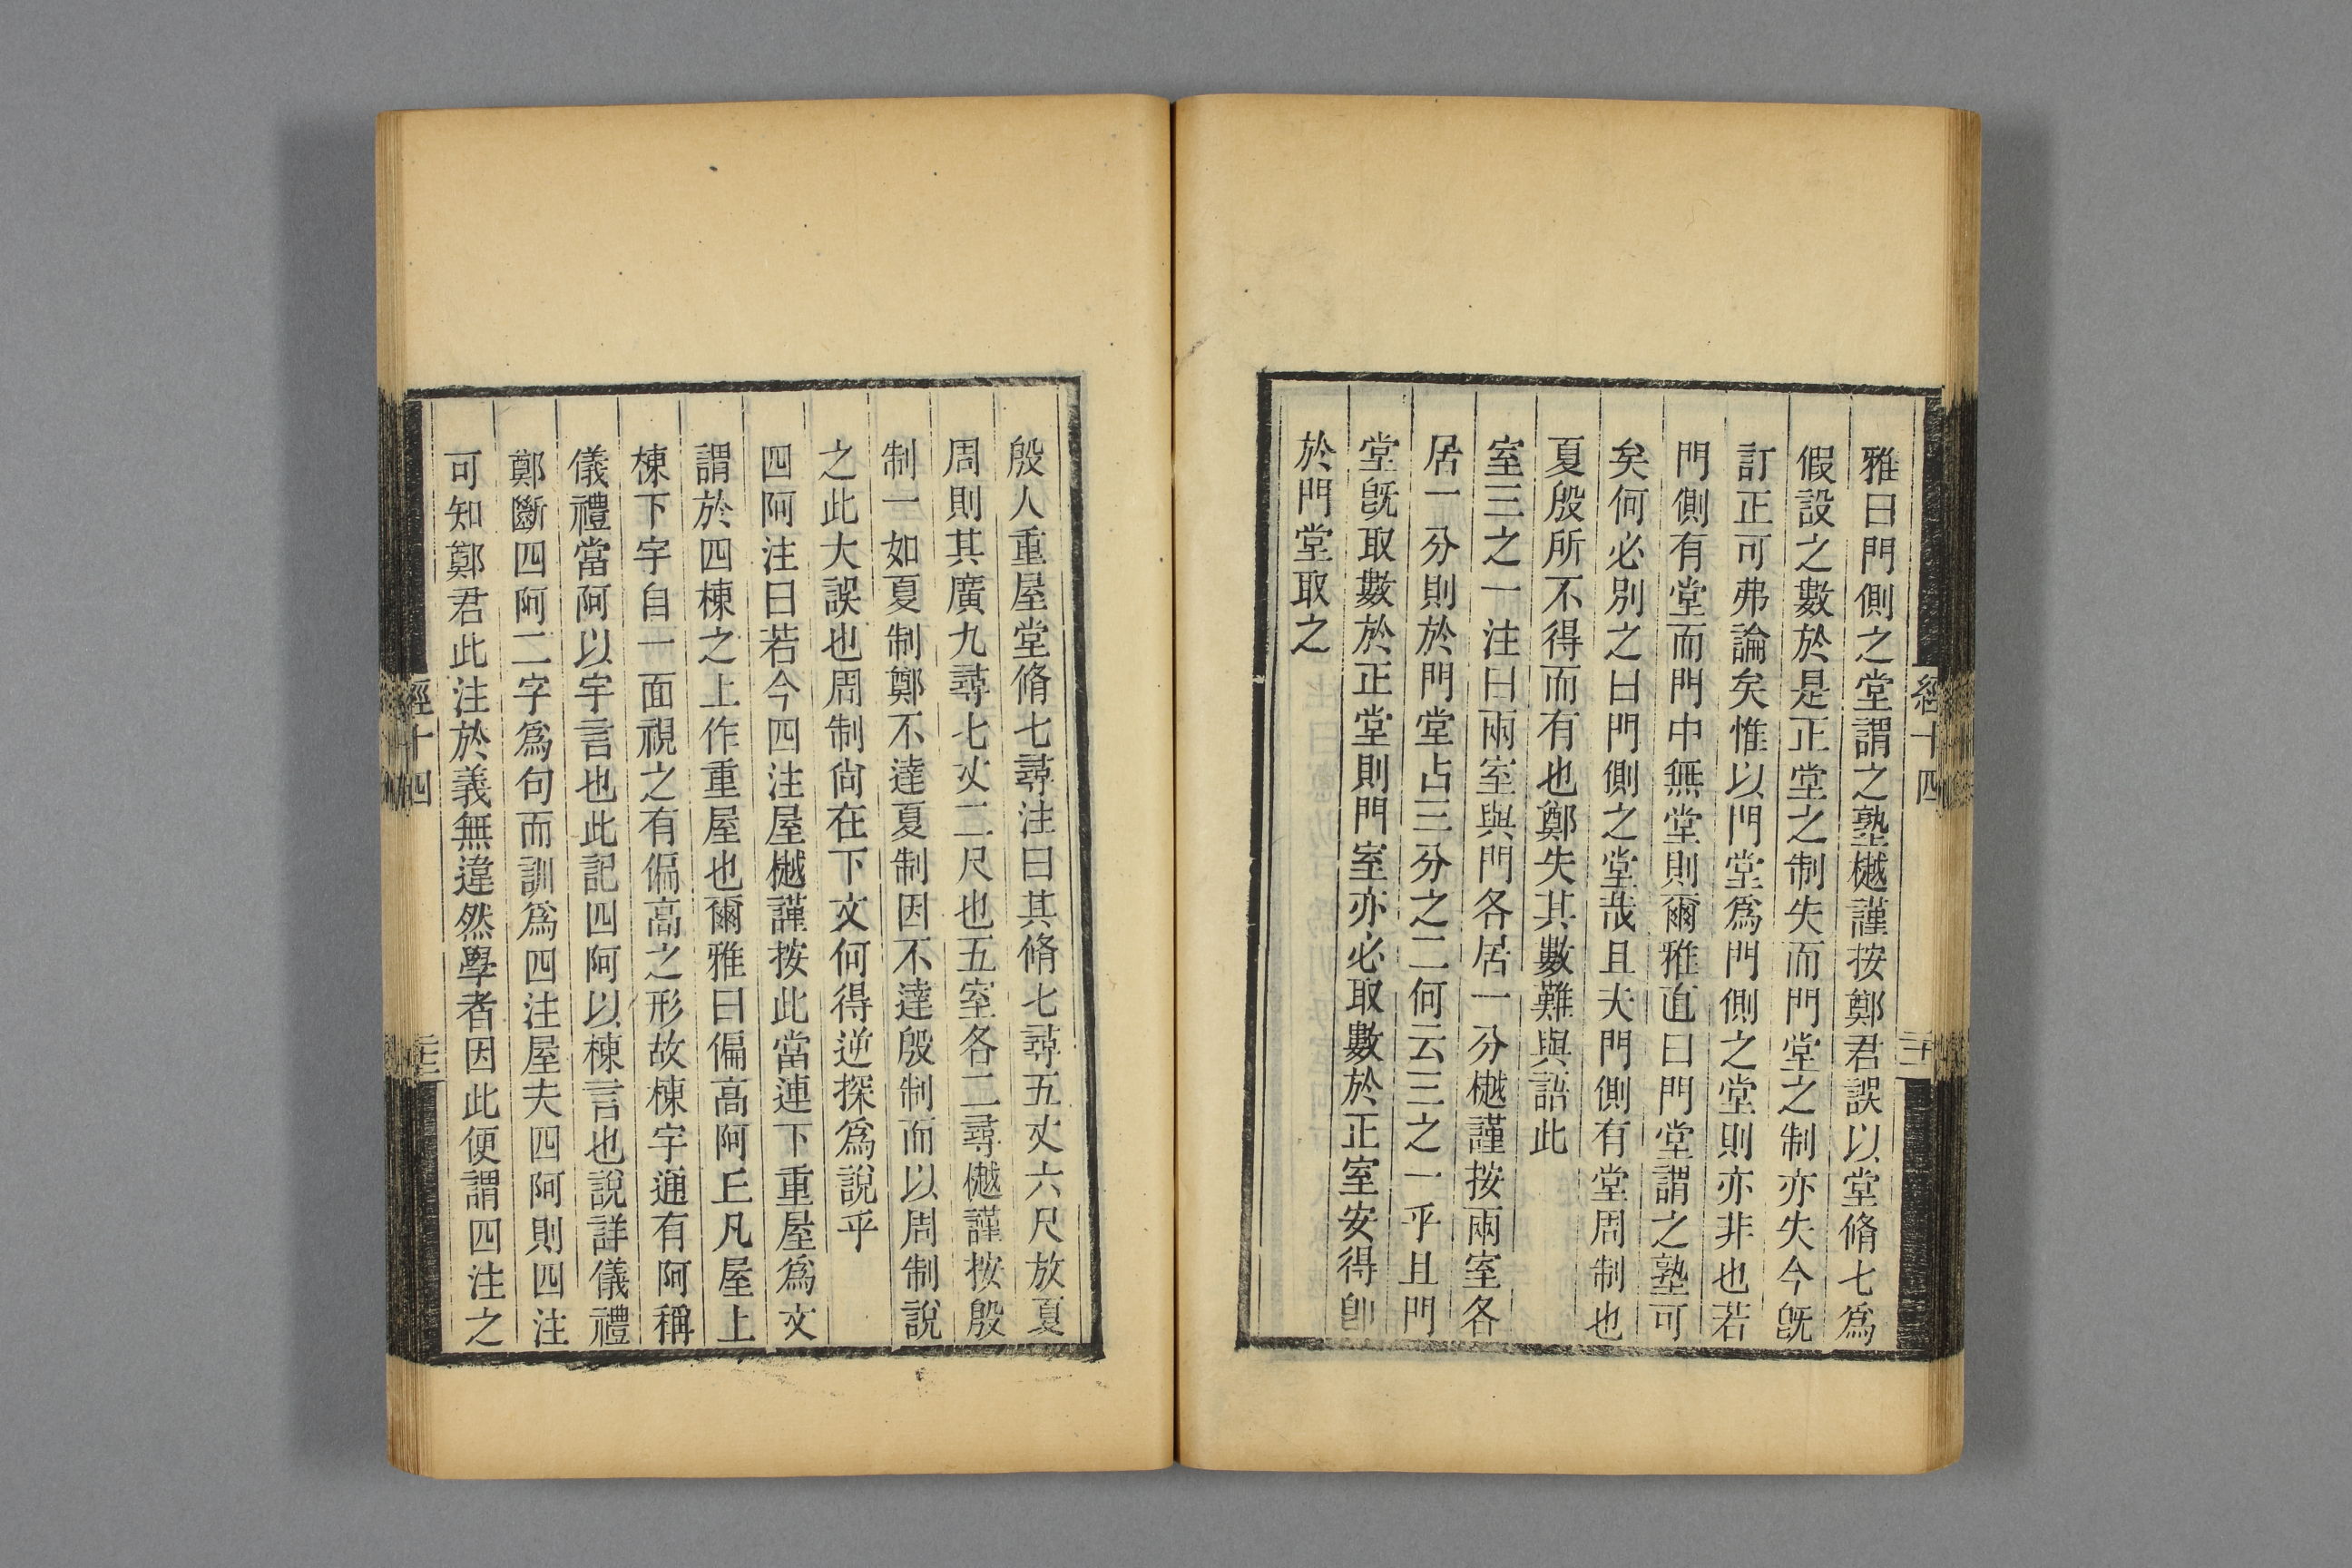 雅曰門側之堂謂之塾樾謹按鄭君誤以堂脩七爲
假設之數於是正堂之制失而門堂之制亦失今旣
訂正可弗論矣惟以門堂爲門側之堂則亦非也若
門側有堂而門中無堂則爾雅直曰門堂謂之塾可
矣何必別之曰門側之堂哉且夫門側有堂周制也
夏殷所不得而有也鄭失其數難與語此
室三之一注曰兩室與門各居一分樾謹按兩室各
居一分則於門堂占三分之二何云三之一乎且門
堂旣取數於正堂則門室亦必取數於正室安得卽
於門堂取之
經十四
殷人重屋堂脩七尋注曰其脩七尋五丈六尺放夏
周則其廣九尋七丈二尺也五室各二尋樾謹按殷
制一如夏制鄭不達夏制因不達殷制而以周制說
之此大誤也周制尙在下文何得逆探爲說乎
四阿注曰若今四注屋樾謹按此當連下重屋爲文
謂於四棟之上作重屋也爾雅曰偏高阿丘凡屋上
棟下宇自一面視之有偏高之形故棟宇通有阿稱
儀禮當阿以宇言也此記四阿以棟言也說詳儀禮
鄭斷四阿二字爲句而訓爲四注屋夫四阿則四注
可知鄭君此注於義無違然學者因此便謂四注之
經十四